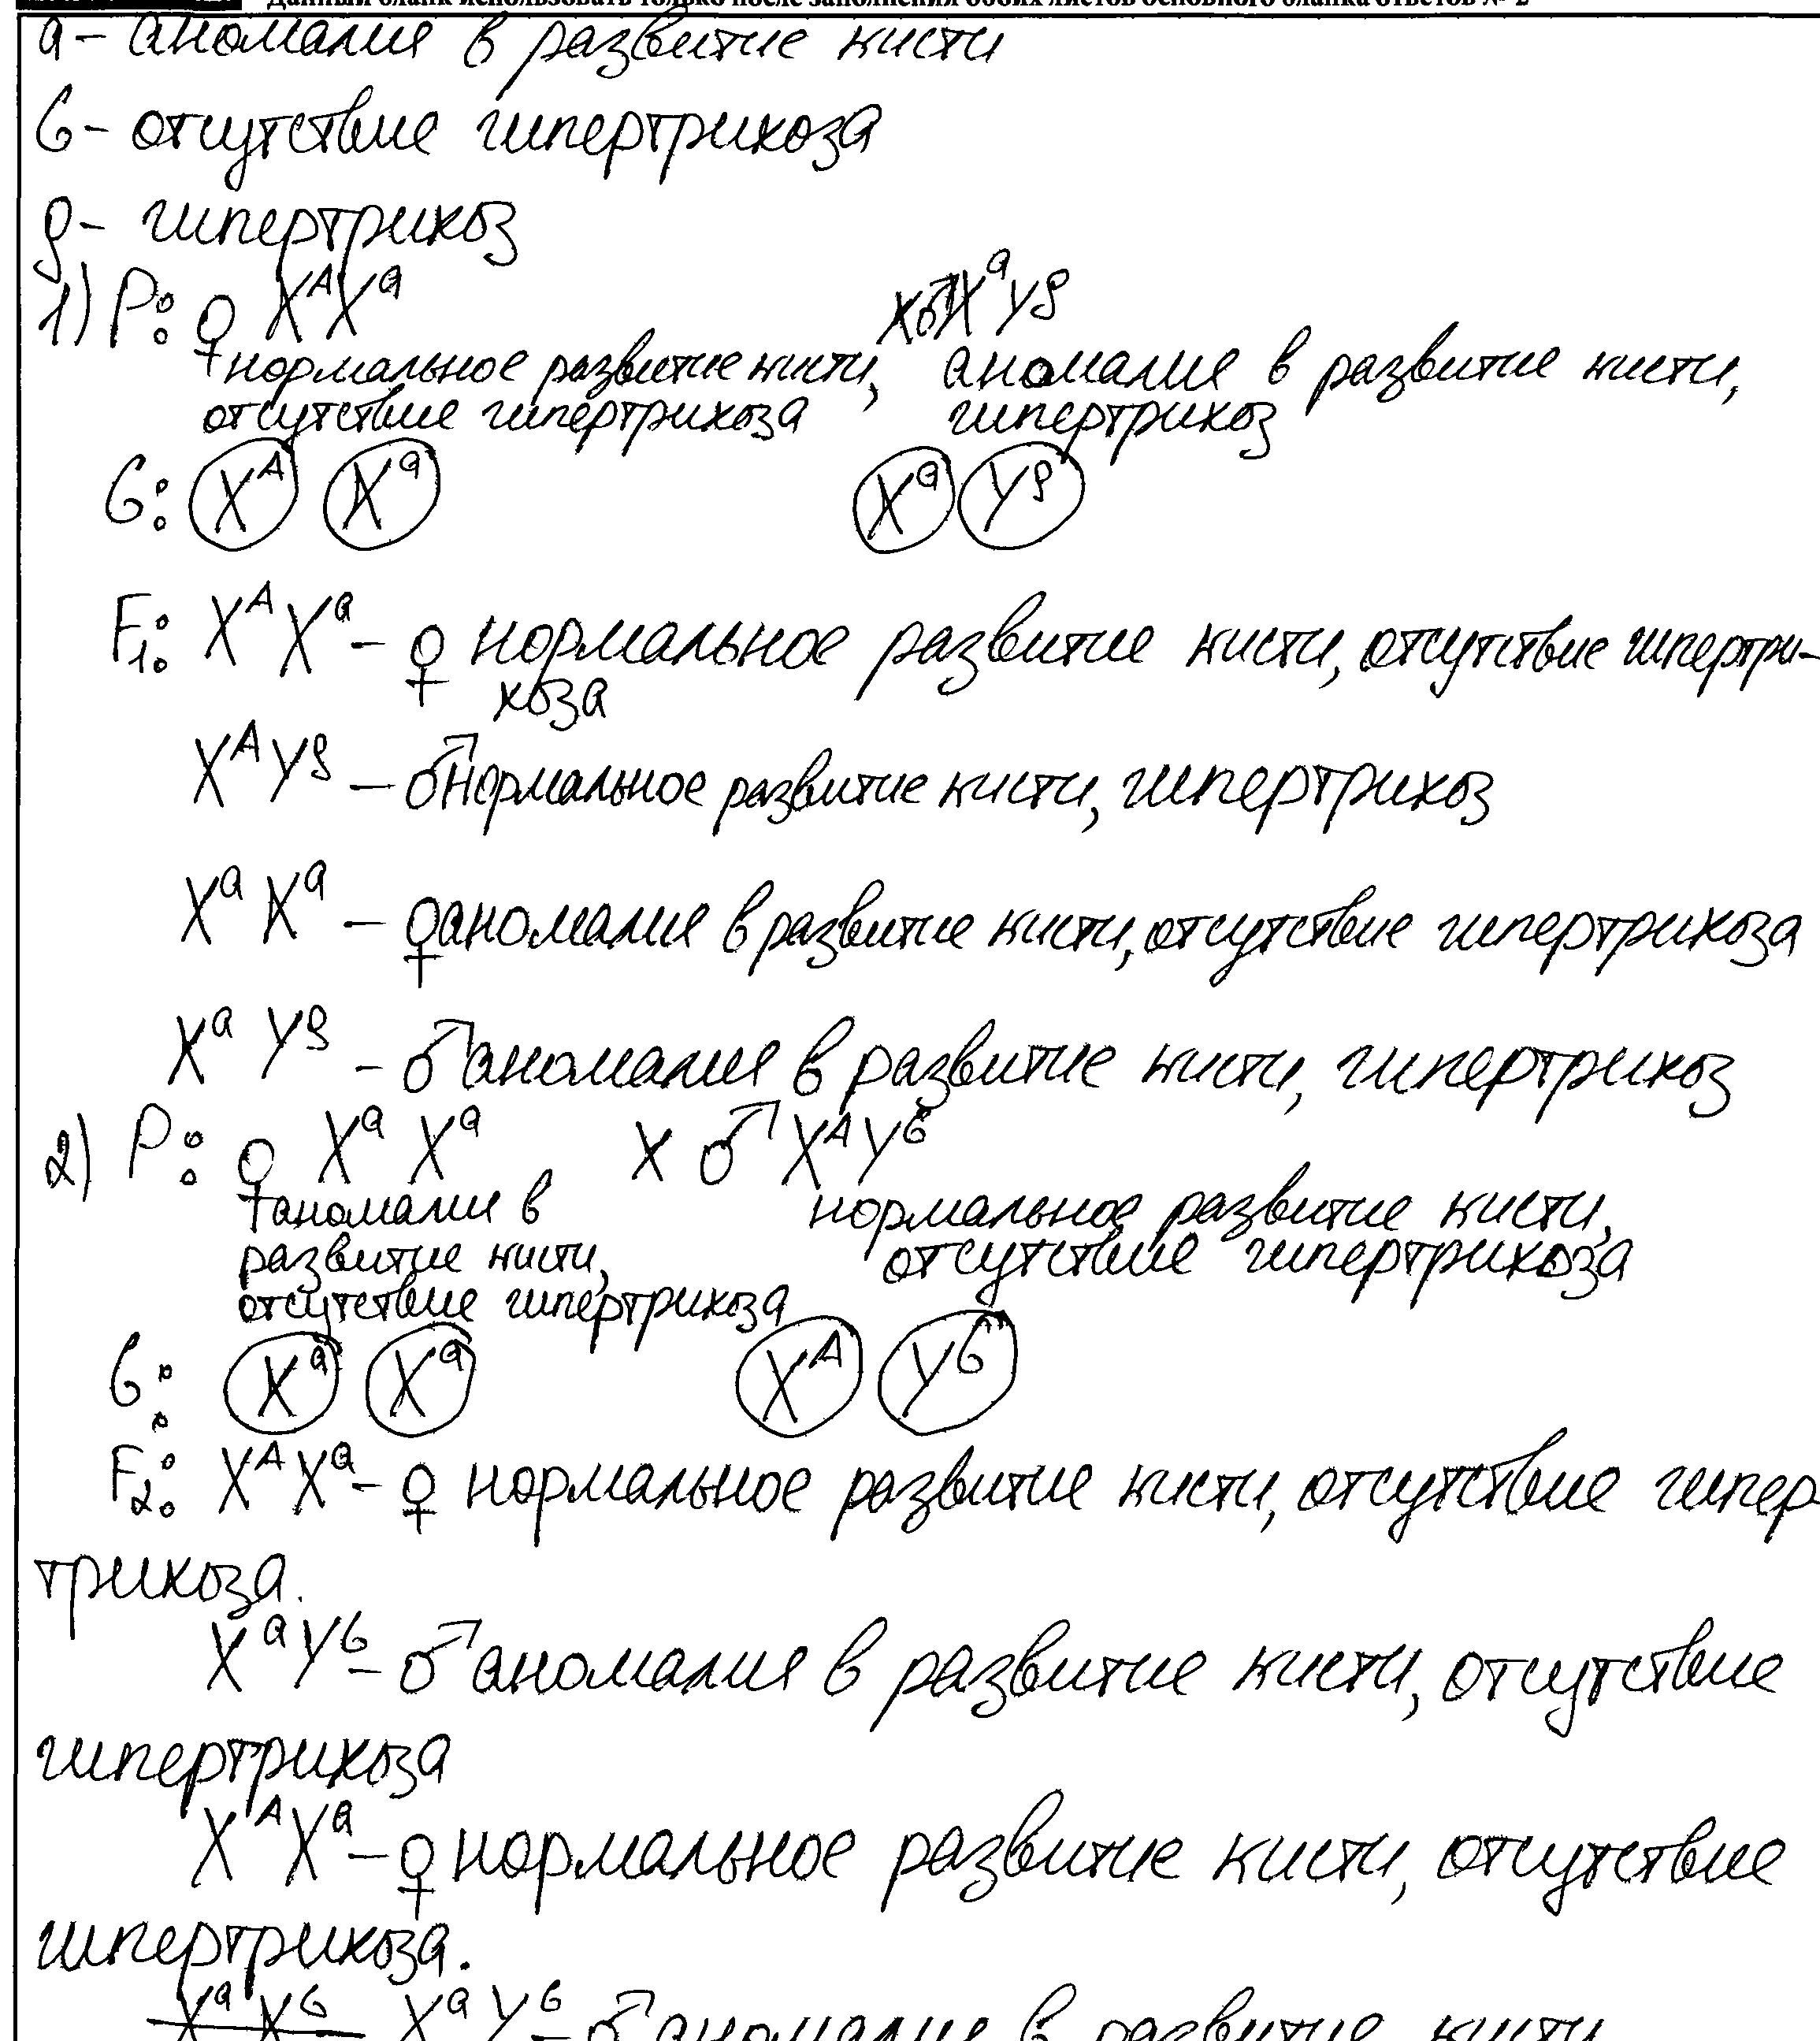 Данный бланк использовать только после заполнения обоих листов основного бланка ответов № 2
а - аномалия в развитие кисти
б - отсутствие гипертрихоза
g - гипертрихоз
1) P: ♀ XᴬXᵃ x ♂ XᵃYᵍ
нормальное развитие кисти, аномалия в развитие кисти,
отсутствие гипертрихоза гипертрихоз
G: Xᴬ Xᵃ Xᵃ Yᵍ
F₁: XᴬXᵃ - ♀ нормальное развитие кисти, отсутствие гипертри-
хоза
XᴬYᵍ - ♂ нормальное развитие кисти, гипертрихоз
XᵃXᵃ - ♀ аномалия в развитие кисти, отсутствие гипертрихоза
XᵃYᵍ - ♂ аномалия в развитие кисти, гипертрихоз
2) P: ♀ XᵃXᵃ x ♂ XᴬYᵇ
аномалия в нормальное развитие кисти,
развитие кисти, отсутствие гипертрихоза
отсутствие гипертрихоза
G: Xᵃ Xᵃ Xᴬ Yᵇ
F₂: XᴬXᵃ - ♀ нормальное развитие кисти, отсутствие гипер
трихоза.
XᵃYᵇ - ♂ аномалия в развитие кисти, отсутствие
гипертрихоза
XᴬXᵃ - ♀ нормальное развитие кисти, отсутствие
гипертрихоза.
XᵃYᵇ - ♂ аномалия в развитие кисти